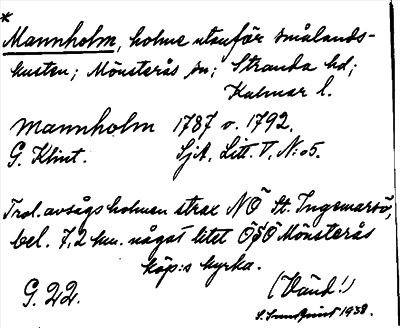 *
Mannholm, holme utanför smålands-
kusten; Mönsterås sn; Stranda hd;
Kalmar l.
Mannholm 1787 o. 1792.
G. Klint. SjA. Litt. V, N:o5.
Trol. avsågs holmen strax NÖ St. Ingemarsö,
bel. 7,2 km. något litet ÖSÖ Mönsterås
köp:s kyrka.
G. 22. (Vänd!)
S. Sundqvist 1938.